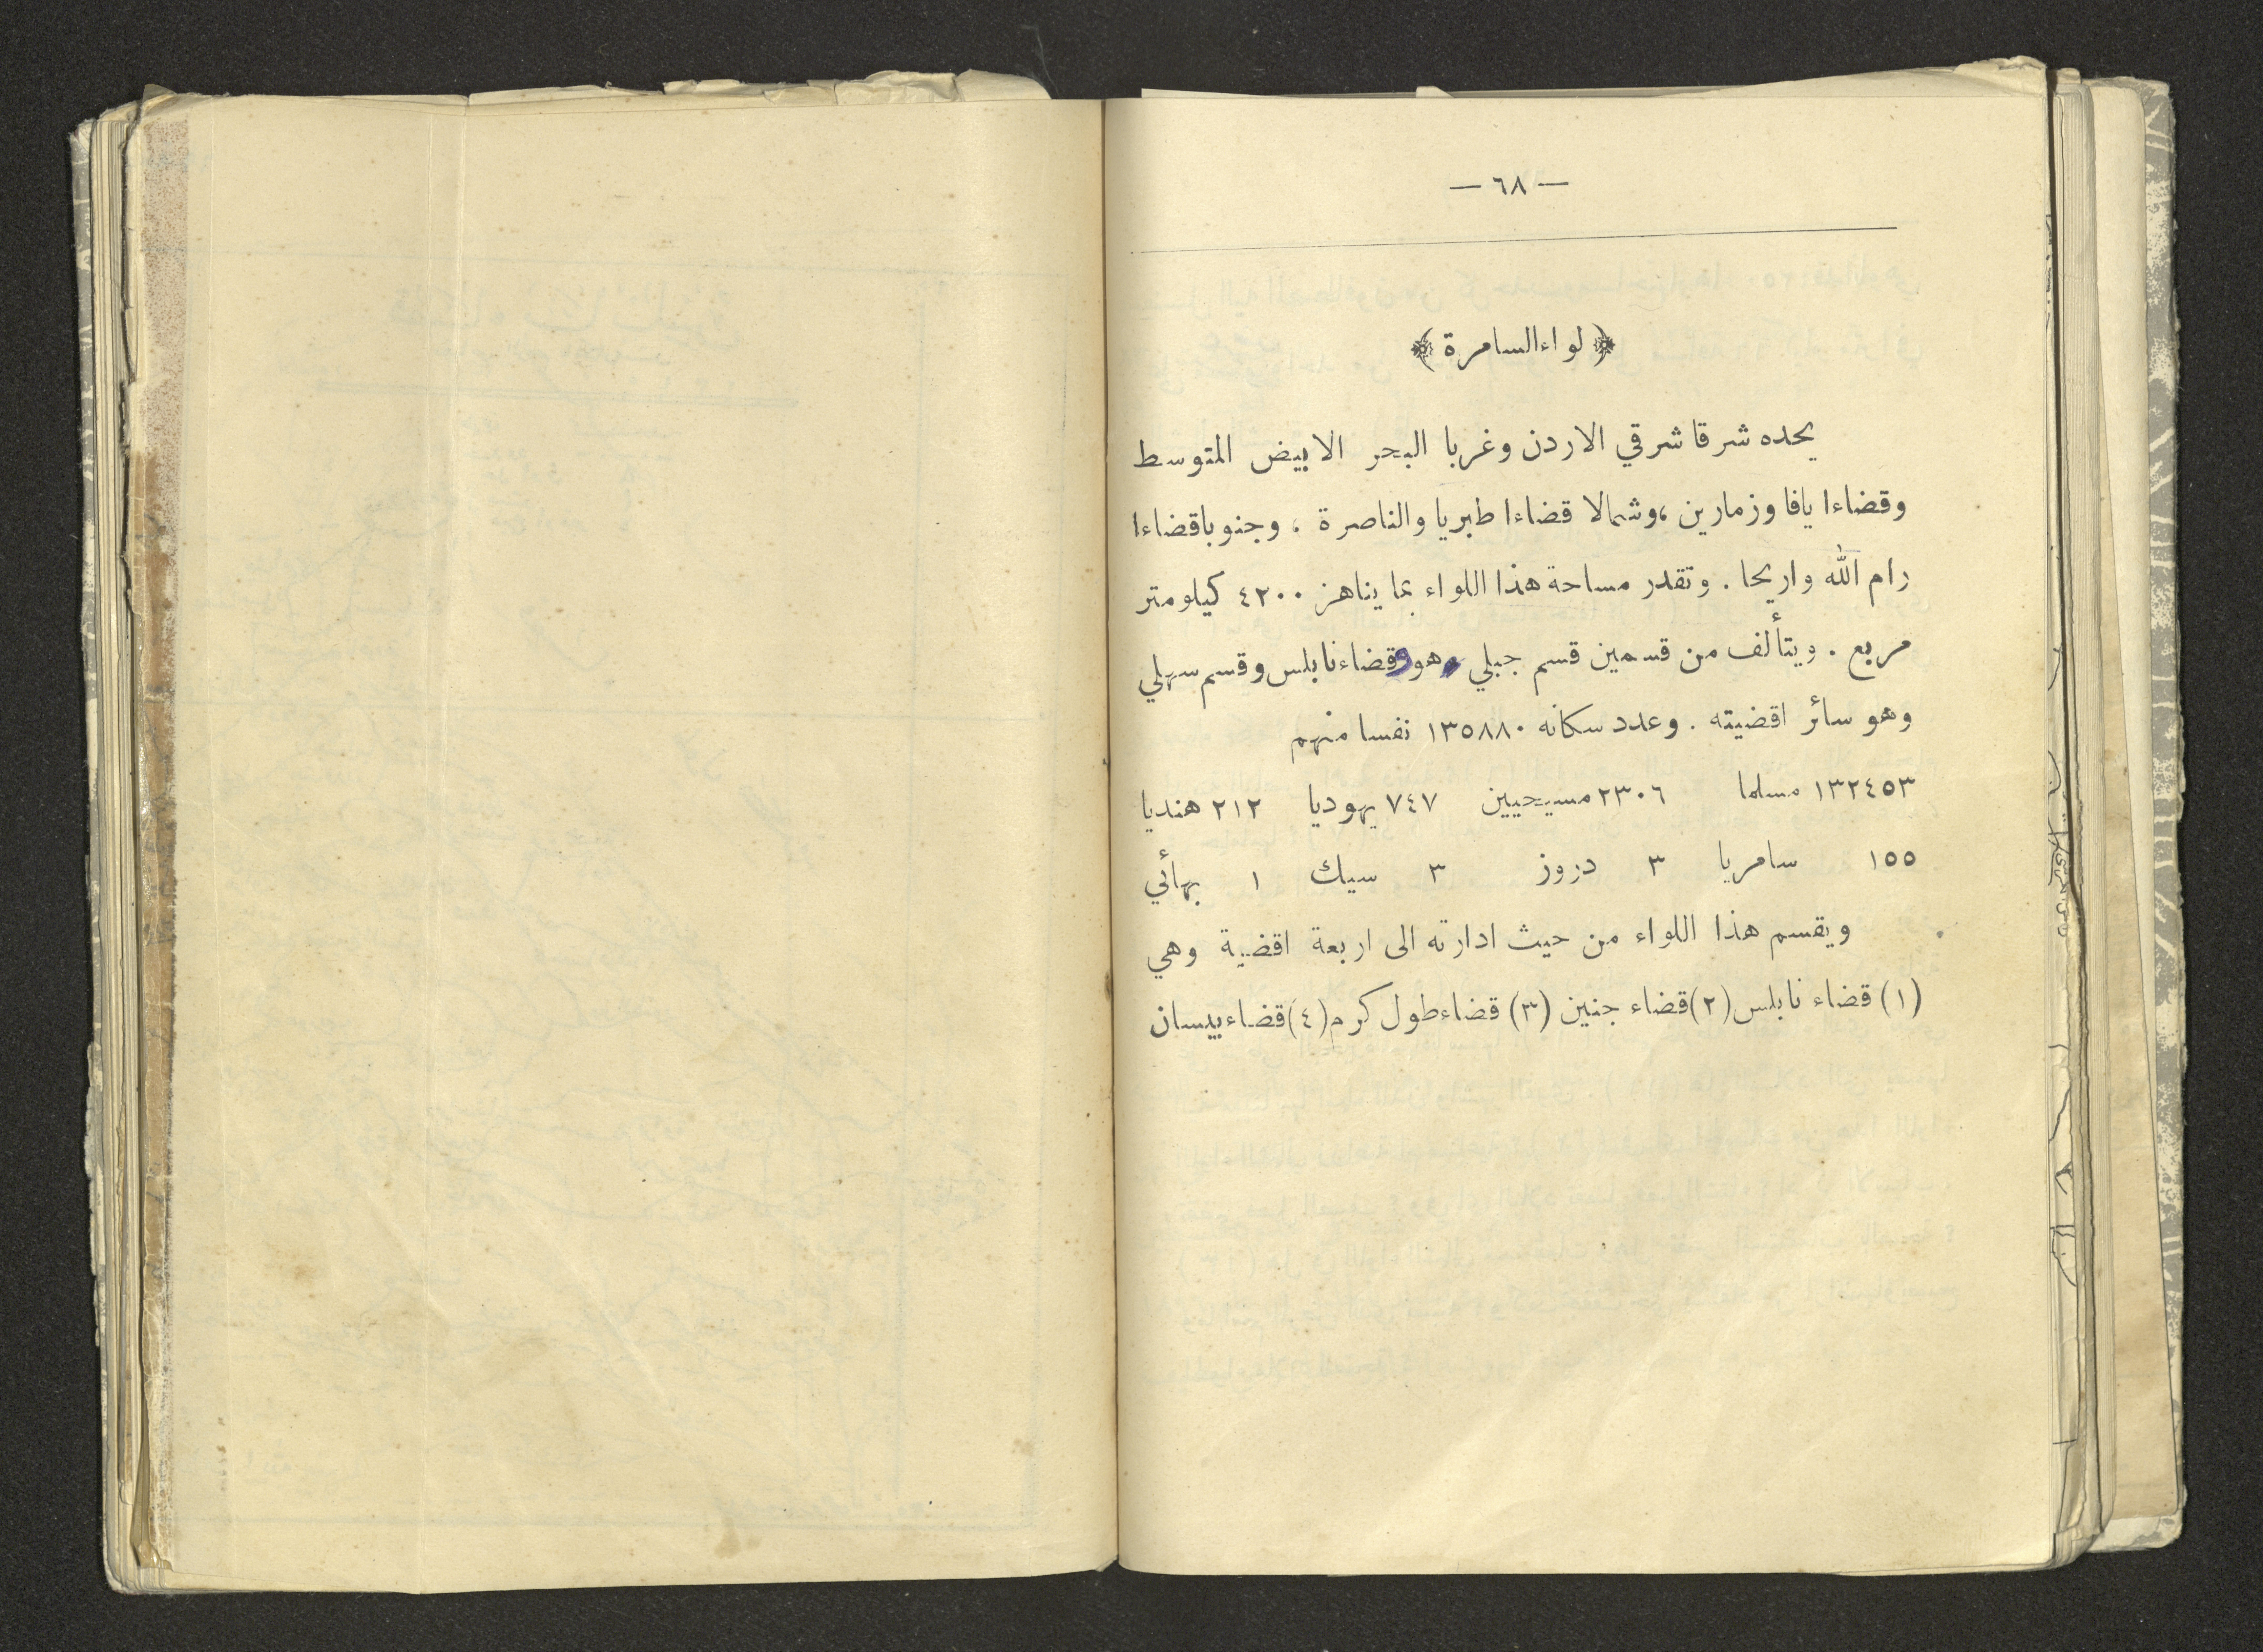 — ٦٨ —
﴿ لواء السامرة ﴾
يحده شرقا شرقي الاردن وغربا البحر الابيض المتوسط
وقضاءا يافا وزمارين ،وشمالا قضاءا طبريا والناصرة ، وجنوبا قضاءا
رام الله واريحا . وتقدر مساحة هذا اللواء بما يناهز ٤٢٠٠ كيلومتر
مربع . ويتألف من قسمين قسم جبلي وهو قضاء نابلس وقسم سهلي
وهو سائر اقضيته . وعدد سكانه ١٣٥٨٨٠ نفسا منهم
١٣٢٤٥٣ مسلما ٢٣٠٦ مسيحيين ٧٤٧ يهوديا ٢١٢ هنديا
١٥٥ سامريا ٣ دروز ٣ سيك ١ بهائي
ويقسم هذا اللواء من حيث ادارته الى اربعة اقضية وهي
(١) قضاء نابلس (٢) قضاء جنين (٣) قضاء طول كرم (٤) قضاء بيسان